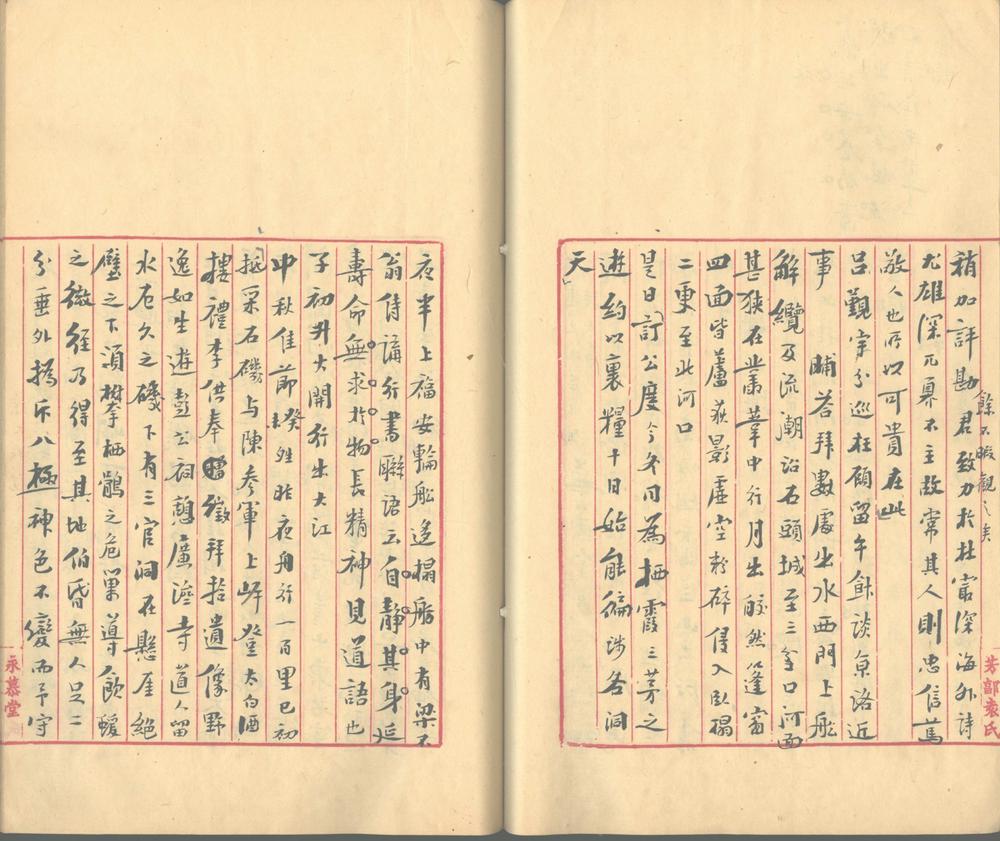 稍加評勘君致力於杜最深海外詩
尤雄深兀奡不主故常其人則忠信篤
敬人也所以可貴在此
餘不暇觀之矣
呂觀察分巡枉顧留午飰談京洛近
事 晡荅拜數處出水西門上舩
解纜及流潮沿石頭城至三釜口河面
甚狹在叢葦中行月出皎然篷窗
四面皆蘆荻影虛空粉碎侵入臥榻
二更至北河口
是日訂公度今冬同為栖霞三茅之
遊約以裹糧十日始能徧涉各洞
天
芳部袁氏
夜半上福安輪船迻榻舲中有梁不
翁侍講行書聯語云自靜其身延
壽命無求於物長精神見道語也
子初升火開行出大江
中秋佳節 昨夜舟行一百里巳初
抵采石磯与陳參軍上岸登太白酒
樓禮李供奉 徵拜拾遺像野
逸如生遊彭公祠憩廣濟寺道人留
水石久之磯下有三官洞在懸崖絕
壁之下須攀栖鶻之危巢導飲蝯
之微徑乃得至其地伯昏無人足二
分垂外揮斥八極神色不變而予守
永慕堂